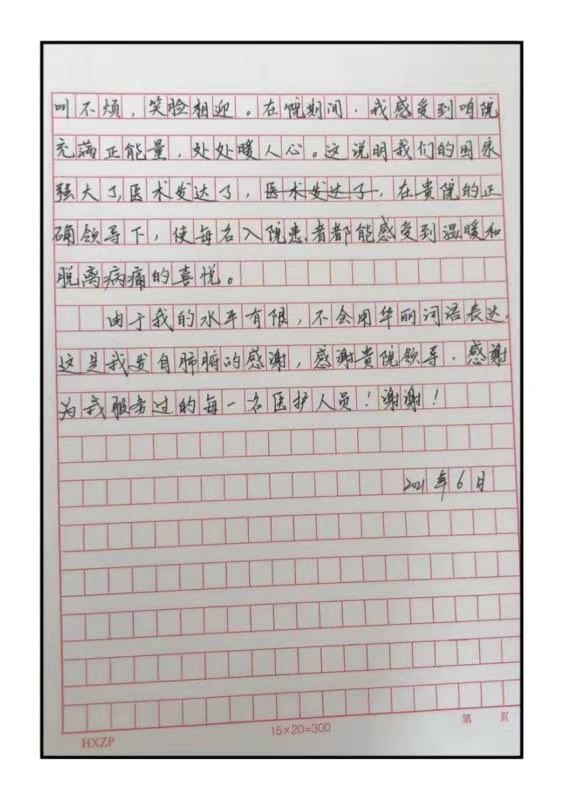 叫不烦，笑脸相迎。在院期间，我感受到咱院
充满正能量，处处暖人心。这说明我们的国家
强大了，医术发达了，医术发达了，在贵院的正
确领导下，使每名入院患者都能感受到温暖和
脱离病痛的喜悦。
由于我的水平有限，不会用华丽词语表达，
这是我发自肺腑的感谢，感谢贵院领导，感谢
为我服务过的每一名医护人员！谢谢！
2021年6月
HXZP
15×20=300
第 页